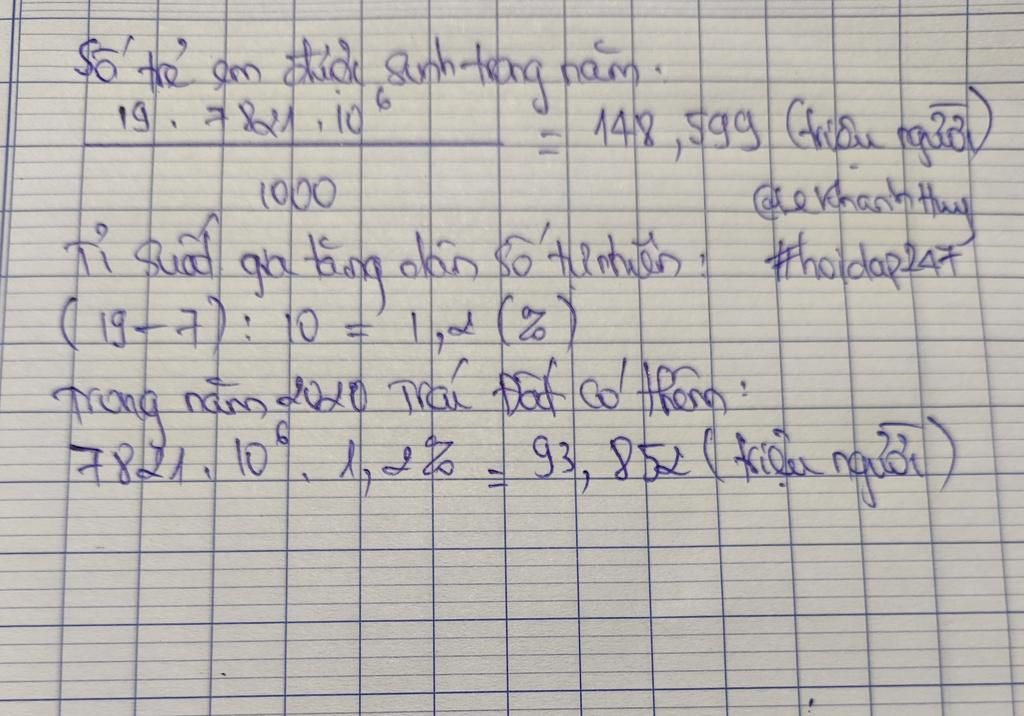 Số trẻ em được sinh trong năm.
19 . 7821 . 10⁶
= 148,599 (triệu người)
1000
@lekhanhhuy
Tỉ suất gia tăng dân số tự nhiên:
#hoidap247
(19 - 7) : 10 = 1,2 (%)
Trong năm 2020 Trái Đất có thêm:
7821 . 10⁶ . 1,2% = 93,852 (triệu người)